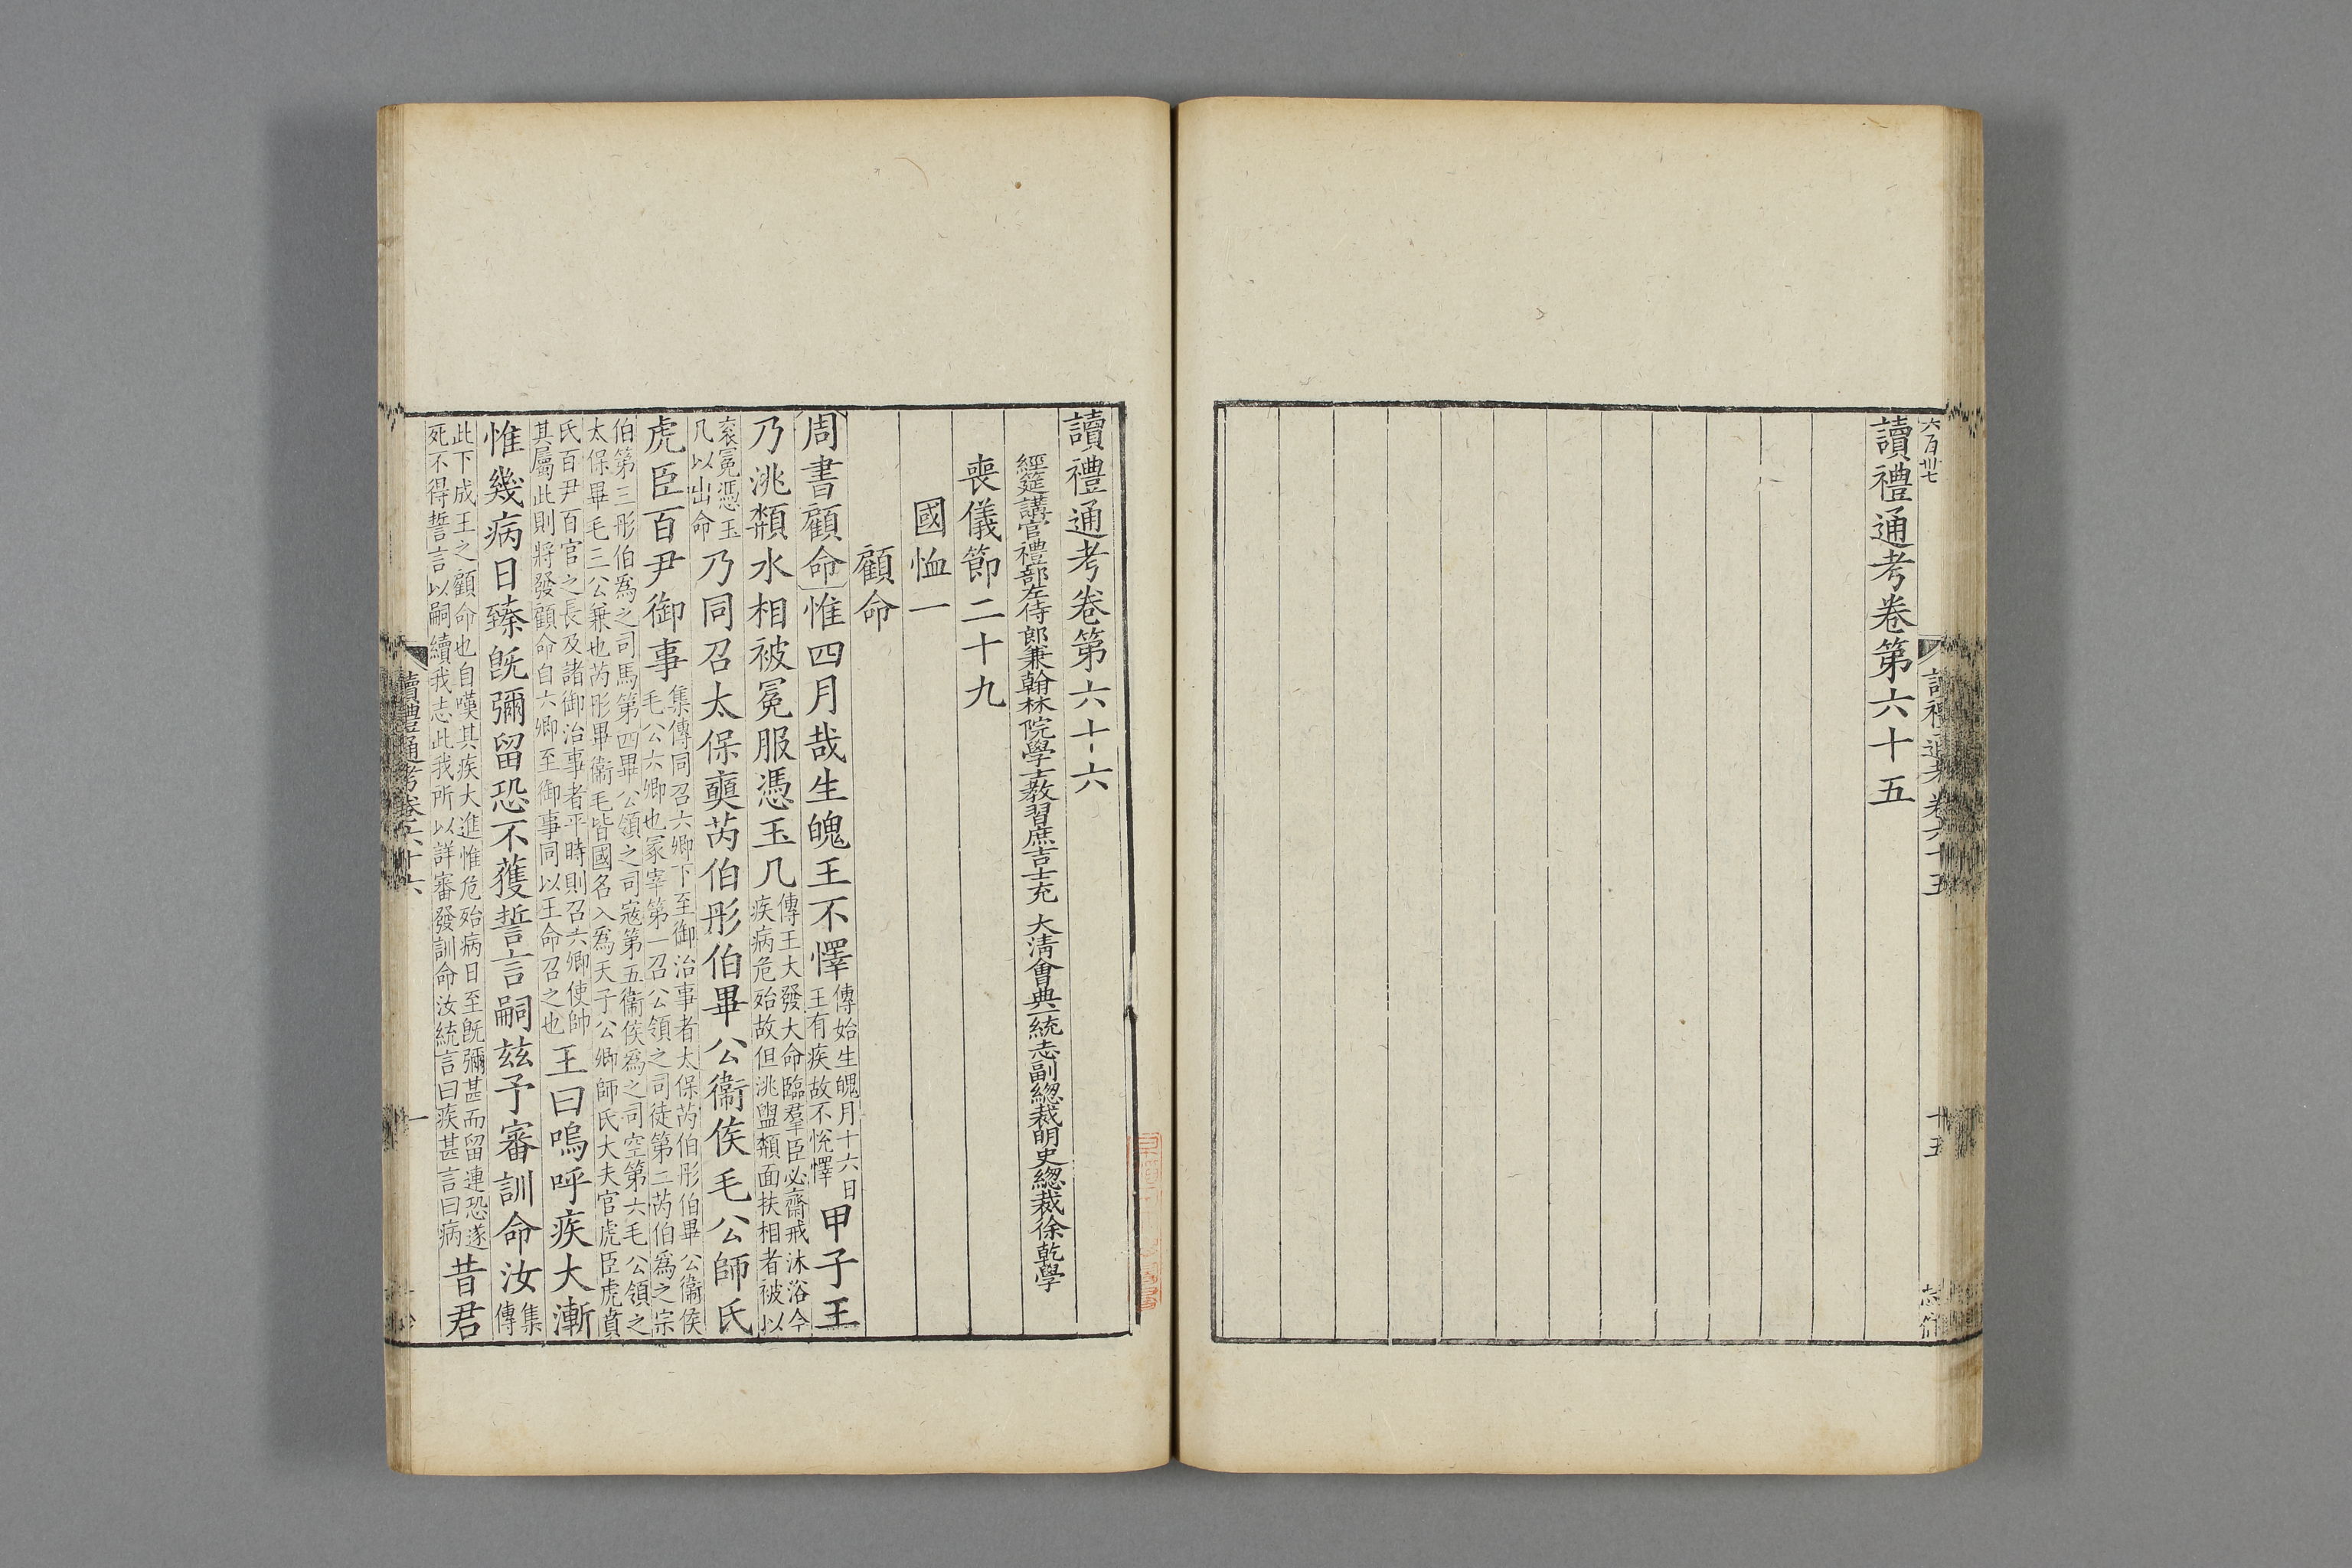 六百卅七
讀禮通考卷第六十五
讀禮通考卷六十五
十五
讀禮通考卷第六十六
經筵講官禮部左侍郎兼翰林院學士教習庶吉士充 大清會典一統志副緫裁明史緫裁徐乾學
喪儀節二十九
國恤一
顧命
周書顧命惟四月哉生魄王不懌傳始生魄月十六日
王有疾故不悅懌甲子王
乃洮頮水相被冕服憑玉几傳王大發大命臨羣臣必齋戒沐浴今
疾病危殆故但洮盥頮面扶相者被以
袞冕憑玉
几以出命乃同召太保奭芮伯彤伯畢公衞侯毛公師氏
虎臣百尹御事集傳同召六卿下至御治事者太保芮伯彤伯畢公衞侯
毛公六卿也冢宰第一召公領之司徒第二芮伯爲之宗
伯第三彤伯爲之司馬第四畢公領之司寇第五衞侯爲之司空第六毛公領之
太保畢毛三公兼也芮彤畢衞毛皆國名入爲天子公卿師氏大夫官虎臣虎賁
氏百尹百官之長及諸御治事者平時則召六卿使帥
其屬此則將發顧命自六卿至御事同以王命召之也王曰嗚呼疾大漸
惟幾病日臻旣彌留恐不獲誓言嗣茲予審訓命汝集
傳
此下成王之顧命也自嘆其疾大進惟危殆病日至旣彌甚而留連恐遂
死不得誓言以嗣續我志此我所以詳審發訓命汝統言曰疾甚言曰病昔君
讀禮通考卷六十六
一